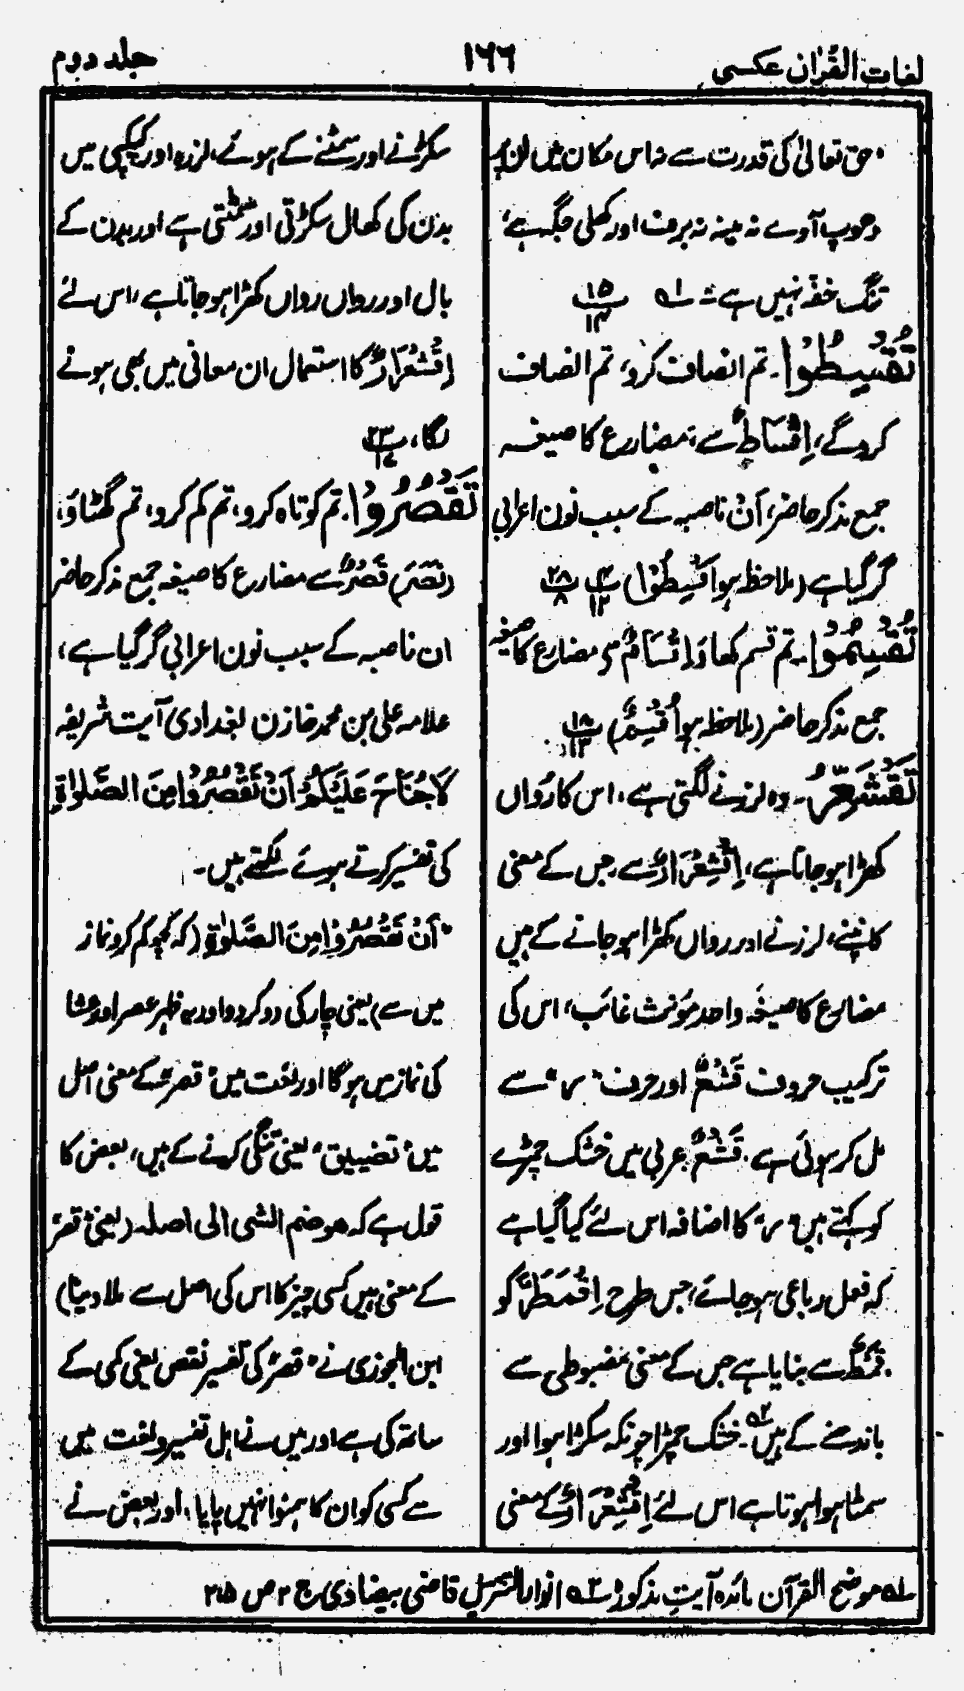 لغات القُرآن عکسی
۱۶۶
جلد دوم
حق تعالیٰ کی قدرت سے نہ اس مکان میں ان پر
دھوپ آوے نہ مینہ نہ برف اور کھلی جگہ ہے،
تنگ خفہ نہیں ہے ۱ه ۱۵/۱۴
تُقْسِطُوْا۔ تم انصاف کرو، تم انصاف
کروگے، اِقْسَاطٌ سے، مضارع کا صیغہ
جمع مذکر حاضر، اَنْ ناصبہ کے سبب نون اعرابی
گر گیا ہے (ملاحظہ ہو اَقْسِطُوْا) ۴/۱۲ ۲۸/۸
تُقْسِمُوْا۔ تم قسم کھاؤ اِقْسَامٌ سے مضارع کا صیغہ
جمع مذکر حاضر (ملاحظہ ہو اُقْسِمُ) ۱۸/۱۳
تَقْشَعِرُّ۔ وہ لرزنے لگتی ہے، اس کا رُواں
کھڑا ہو جاتا ہے، اِقْشِعْرَارٌ سے جس کے معنی
کانپنے، لرزنے اور رواں کھڑا ہو جانے کے ہیں
مضارع کا صیغہ واحد مؤنث غائب، اس کی
ترکیب حروف قَشْعٌ اور حرف "ر" سے
مل کر ہوئی ہے۔ قَشْعٌ عربی میں خشک چمڑے
کو کہتے ہیں "ر" کا اضافہ اس لئے کیا گیا ہے
کہ فعل رباعی ہو جائے، جس طرح اِقْمَطَرَّ کو
قَمْطٌ سے بنایا ہے جس کے معنی مضبوطی سے
باندھنے کے ہیں ۲ه۔ خشک چمڑا چونکہ سکڑا ہوا اور
سمٹا ہوا ہوتا ہے اس لئے اِقْشِعْرَارٌ کے معنی
سکڑنے اور سمٹنے کے ہوئے، لرزہ اور کپکپی میں
بدن کی کھال سکڑتی اور سمٹتی ہے اور بدن کے
بال اور رواں رواں کھڑا ہو جاتا ہے، اس لئے
اِقْشِعْرَارٌ کا استعمال ان معانی میں بھی ہونے
لگا، ۲۳/۱۷
تَقْصُرُوْا۔ تم کوتاہ کرو، تم کم کرو، تم گھٹاؤ،
(نَصَرَ) قَصْرٌ سے مضارع کا صیغہ جمع مذکر حاضر
ان ناصبہ کے سبب نون اعرابی گر گیا ہے،
علامہ علی بن محمد خازن بغدادی آیت شریفہ
لَاجُنَاحَ عَلَيْكُمْ اَنْ تَقْصُرُوْا مِنَ الصَّلٰوةِ
کی تفسیر کرتے ہوئے لکھتے ہیں۔
"اَنْ تَقْصُرُوْا مِنَ الصَّلٰوةِ (کہ کچھ کم کرو نماز
میں سے) یعنی چار کی دو کر دو اور یہ ظہر عصر اور عشا
کی نماز میں ہوگا اور لغت میں "قصر" کے معنی اصل
میں "تضییق" یعنی تنگی کرنے کے ہیں، بعض کا
قول ہے کہ ھو ضم الشی الی اصلہ (یعنی "قصر"
کے معنی ہیں کسی چیز کا اس کی اصل سے ملا دینا)
ابن الجوزی نے "قصر" کی تفسیر نقص یعنی کمی کے
ساتھ کی ہے اور میں نے اہل تفسیر و لغت میں
سے کسی کو ان کا ہمنوا نہیں پایا، اور بعض نے
۱ه موضح القرآن مائدہ آیتِ مذکور ۲ه انوار التنزیل قاضی بیضاوی ج ۲ ص ۲۱۵